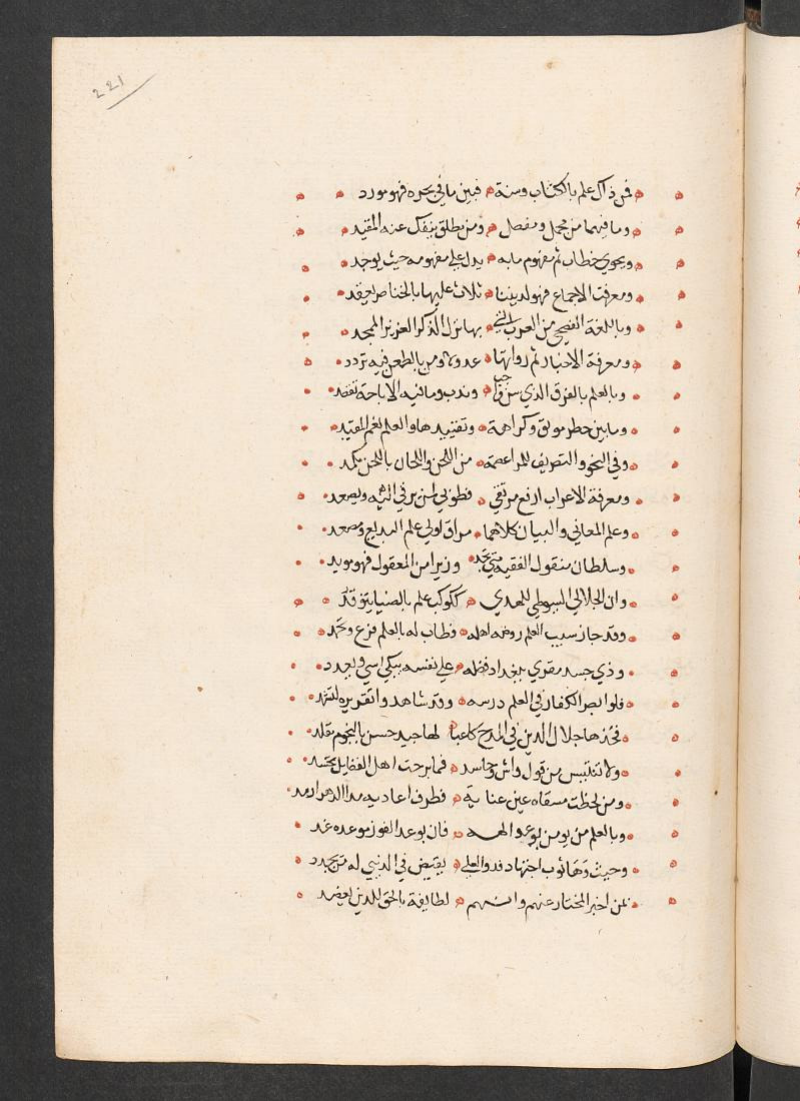 221
فمن ذاك علم بالكتاب وسنة فبين ما في بحره فهو مورد
وما فيهما من مجمل ومفصل ومن مطلق ينفك عنه المقيد
وفحوي خطاب ثم مفهوم ما به يدل علي مفهومه حيث يوجد
ومعرفت الاجماع فهو لديننا ثلاث عليها بالخناصر يعقد
وباللغة الفصحي من العرب التي بها نزل الذكر العزيز الممجد
ومعرفة الاخبار ثم رواتها عدولا ومن بالطعن فيه تردد
وبالعلم بالفرق الذي بين واجب وندب وما فيه الاباحة تقصد
وما بين حظر موبق وكراهة وتقييدها والعلم نعم المقيد
وفي النحو والتصريف للمرء عصمة من اللحن واللحان باللحن يكمد
ومعرفة الاعراب ارفع مرتقي فطوبي لمن يرقي اليه ويصعد
وعلم المعاني والبيان كلاهما مراق لولي علم البديع ومصعد
وسلطان منقول الفقيه متي يجد وزيرا من المعقول فهو مويد
وان الجلالي السيوطي للهدي ككوكب علم بالضيا يتوقد
وقد جاز سيب العلم روضه اهله وطاب له بالعلم فرع ومحتد
وذي حسد مغري بتعداد فضله علي نفسه يبكي اسي ويعدد
فلو ابصر الكفار في العلم درسه وقد شاهدوا تقريره لتشهدوا
فخذها جلال الدين في المدح كاعبا لها جيد حسن بالنجوم تقلد
ولا تبتئس من قول واش وحاسد فما برحت اهل الفضايل تحسد
ومن لحظت مسعاه عين عناية فطرف اعاديه مدا الدهر ارمد
وبالعلم من يومن بوعد الهه فان بوعد الفوز موعده غد
وحيث اجتهاد ذو العلي يقيض في الدنيي له من يجدد
لمن اخبر المختار عنهم وانهم لطايفة بالحق للدين تعضد